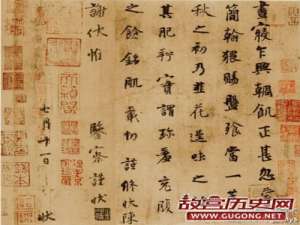 晝寢乍興輖飢正甚忽蒙
簡翰猥賜盤飧當一葉報
秋之初乃韭花逞味之始
其肥羜實謂珍羞充腹
之餘銘肌載切謹修狀陳
謝伏惟鑒察謹狀
七月十一日 狀
故宫历史网
WWW.GUGONG.NET